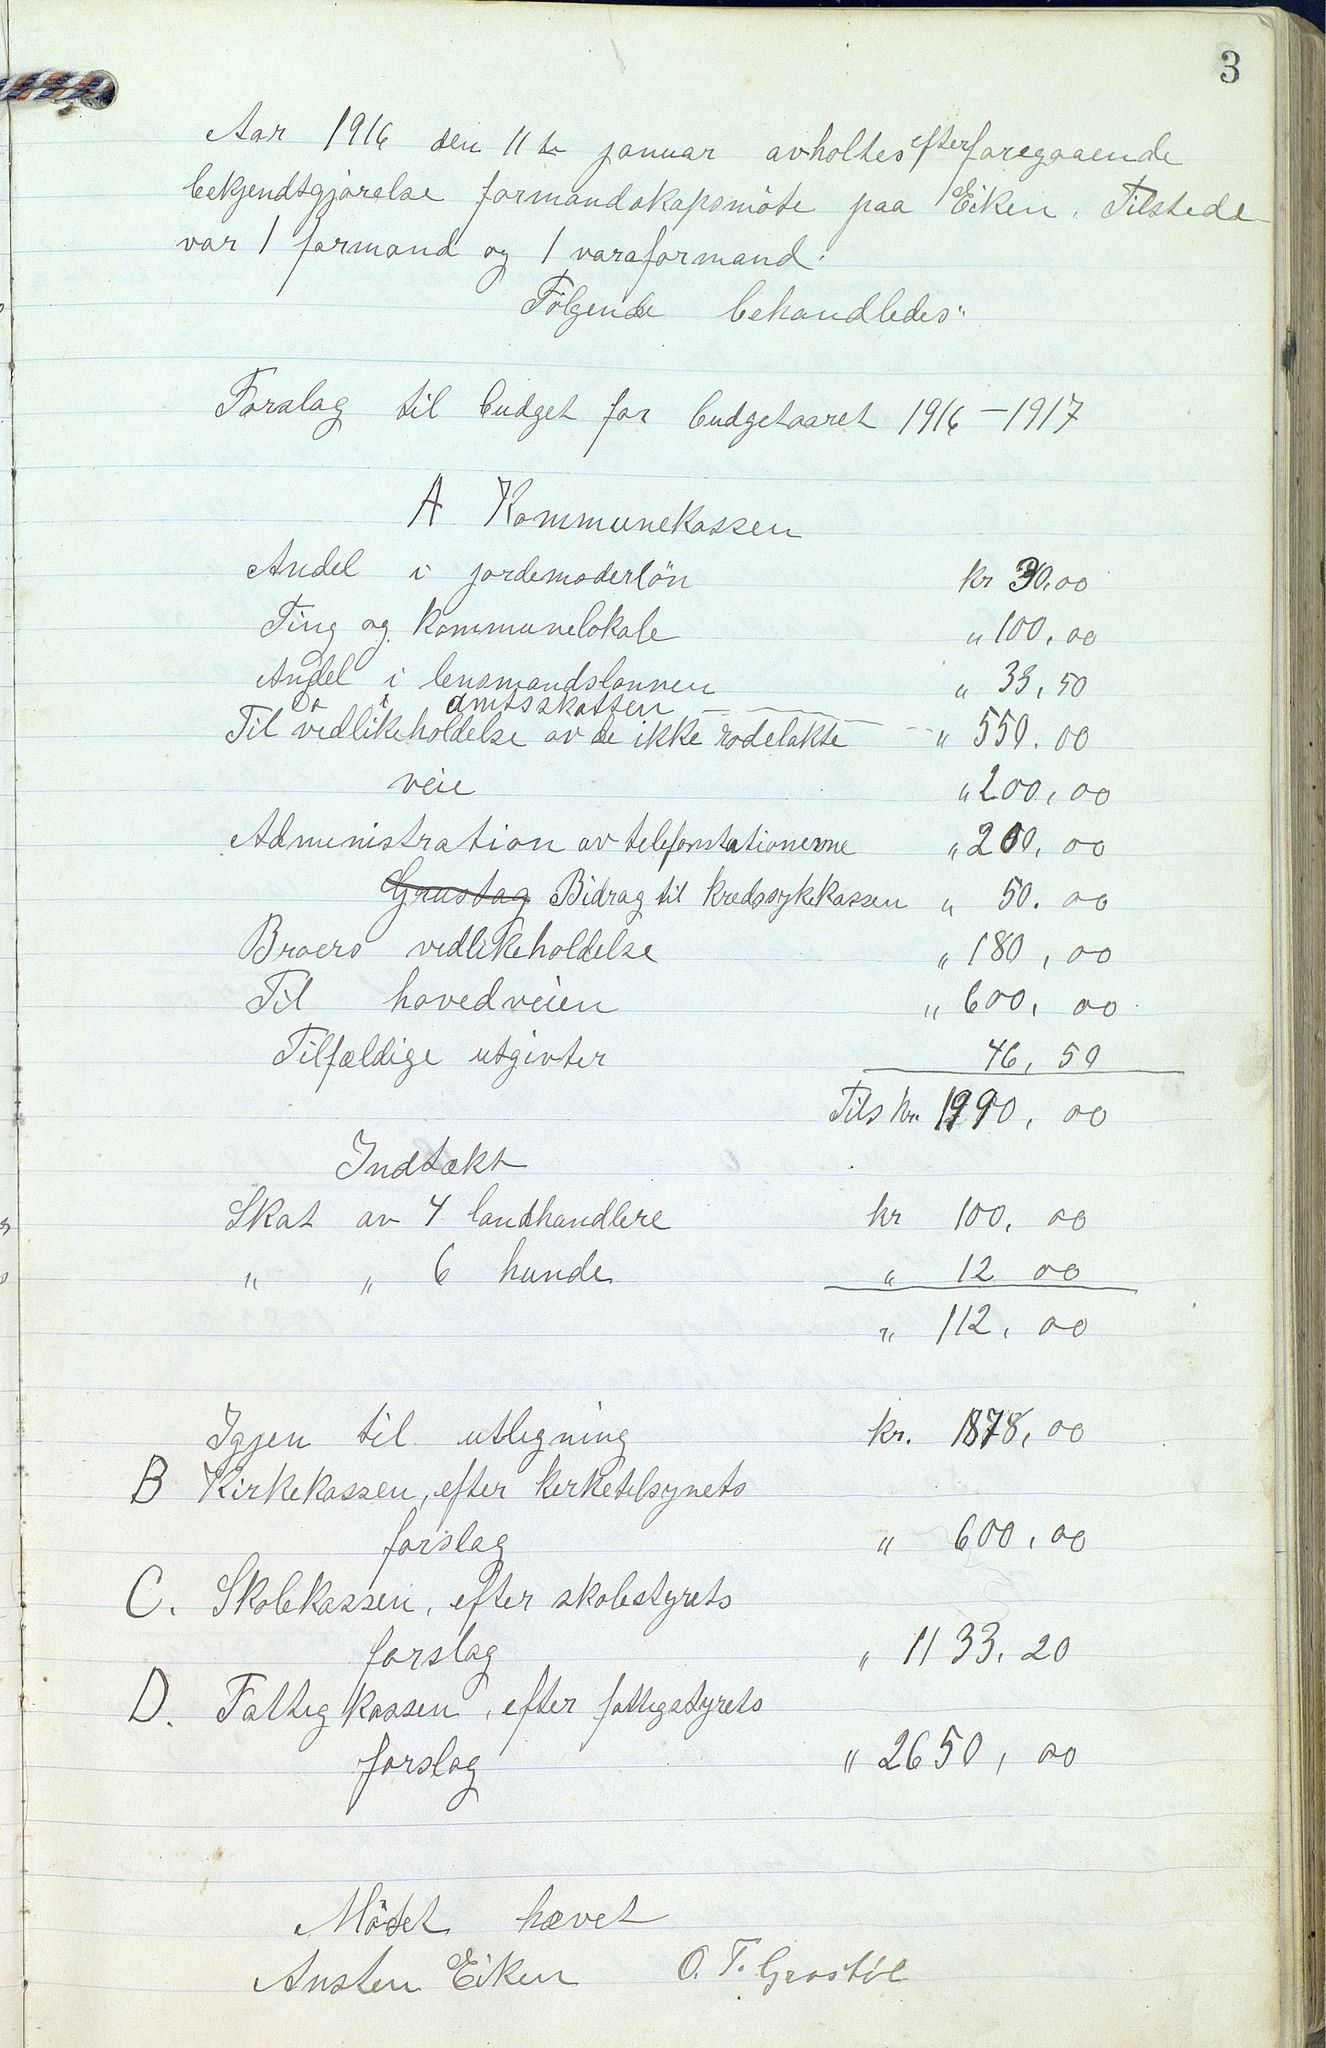 3
Aar 1916 den 11te januar avholtes efter foregaaende
bekjendtgjørelse formandskapsmöte paa Eiken. Tilstede
var 1 formand og 1 varaformand.
Følgende behandledes:
Forslag til budget for budgetaaret 1916-1917
A Kommunekassen
Andel i jordemoderlön kr 30,00
Ting og kommunelokale " 100,00
Andel i lensmandslønnen " 33,50
Do i amtsskatten — " 550.00
Til vedlikeholdelse av de ikke rodelakte
veie " 200,00
Administration av telefonstationerne " 200,00
Grustag Bidrag til kredssykekassen " 50.00
Broers vedlikeholdelse " 180,00
Til hovedveien " 600,00
Tilfældige utgivter 46,50
Tils kr. 1990,00
Indtækt
Skat av 4 landhandlere kr 100,00
" " 6 hunde " 12 00
" 112,00
Igjen til utligning kr. 1878,00
B Kirkekassen, efter kirketilsynets
forslag " 600,00
C. Skolekassen, efter skolestyrets
forslag " 1133,20
D. Fattigkassen, efter fattigstyrets
forslag " 2650,00
Mödet hævet
Ansten Eiken O. T. Grostøl